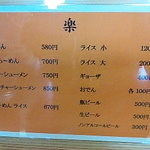 楽
ん 580円
ーめん 700円
ーシューメン 750円
チャーシューメン 850円
らーめん ライス 670円
ライス 小 120
ライス 大 200
ギョーザ 400
おでん 各100円
瓶ビール 500円
生ビール 500円
ノンアルコールビール 300円